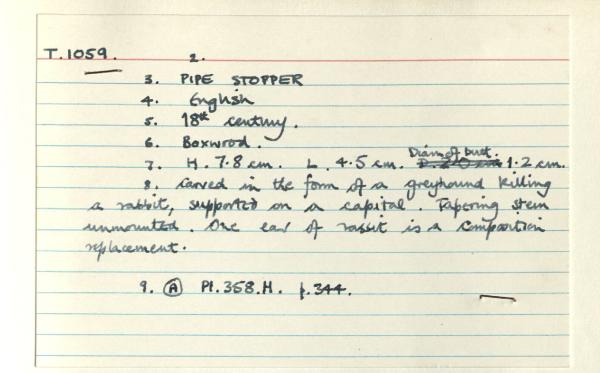 T.1059. 2.
3. PIPE STOPPER
4. English
5. 18th century.
6. Boxwood.
Diam of butt.
7. H. 7.8 cm. L. 4.5 cm. 1.2 cm.
8. Carved in the form of a greyhound killing
a rabbit, supported on a capital. Tapering stem
unmounted. One ear of rabbit is a composition
replacement.
9. (A) Pl. 358.H. p.344.